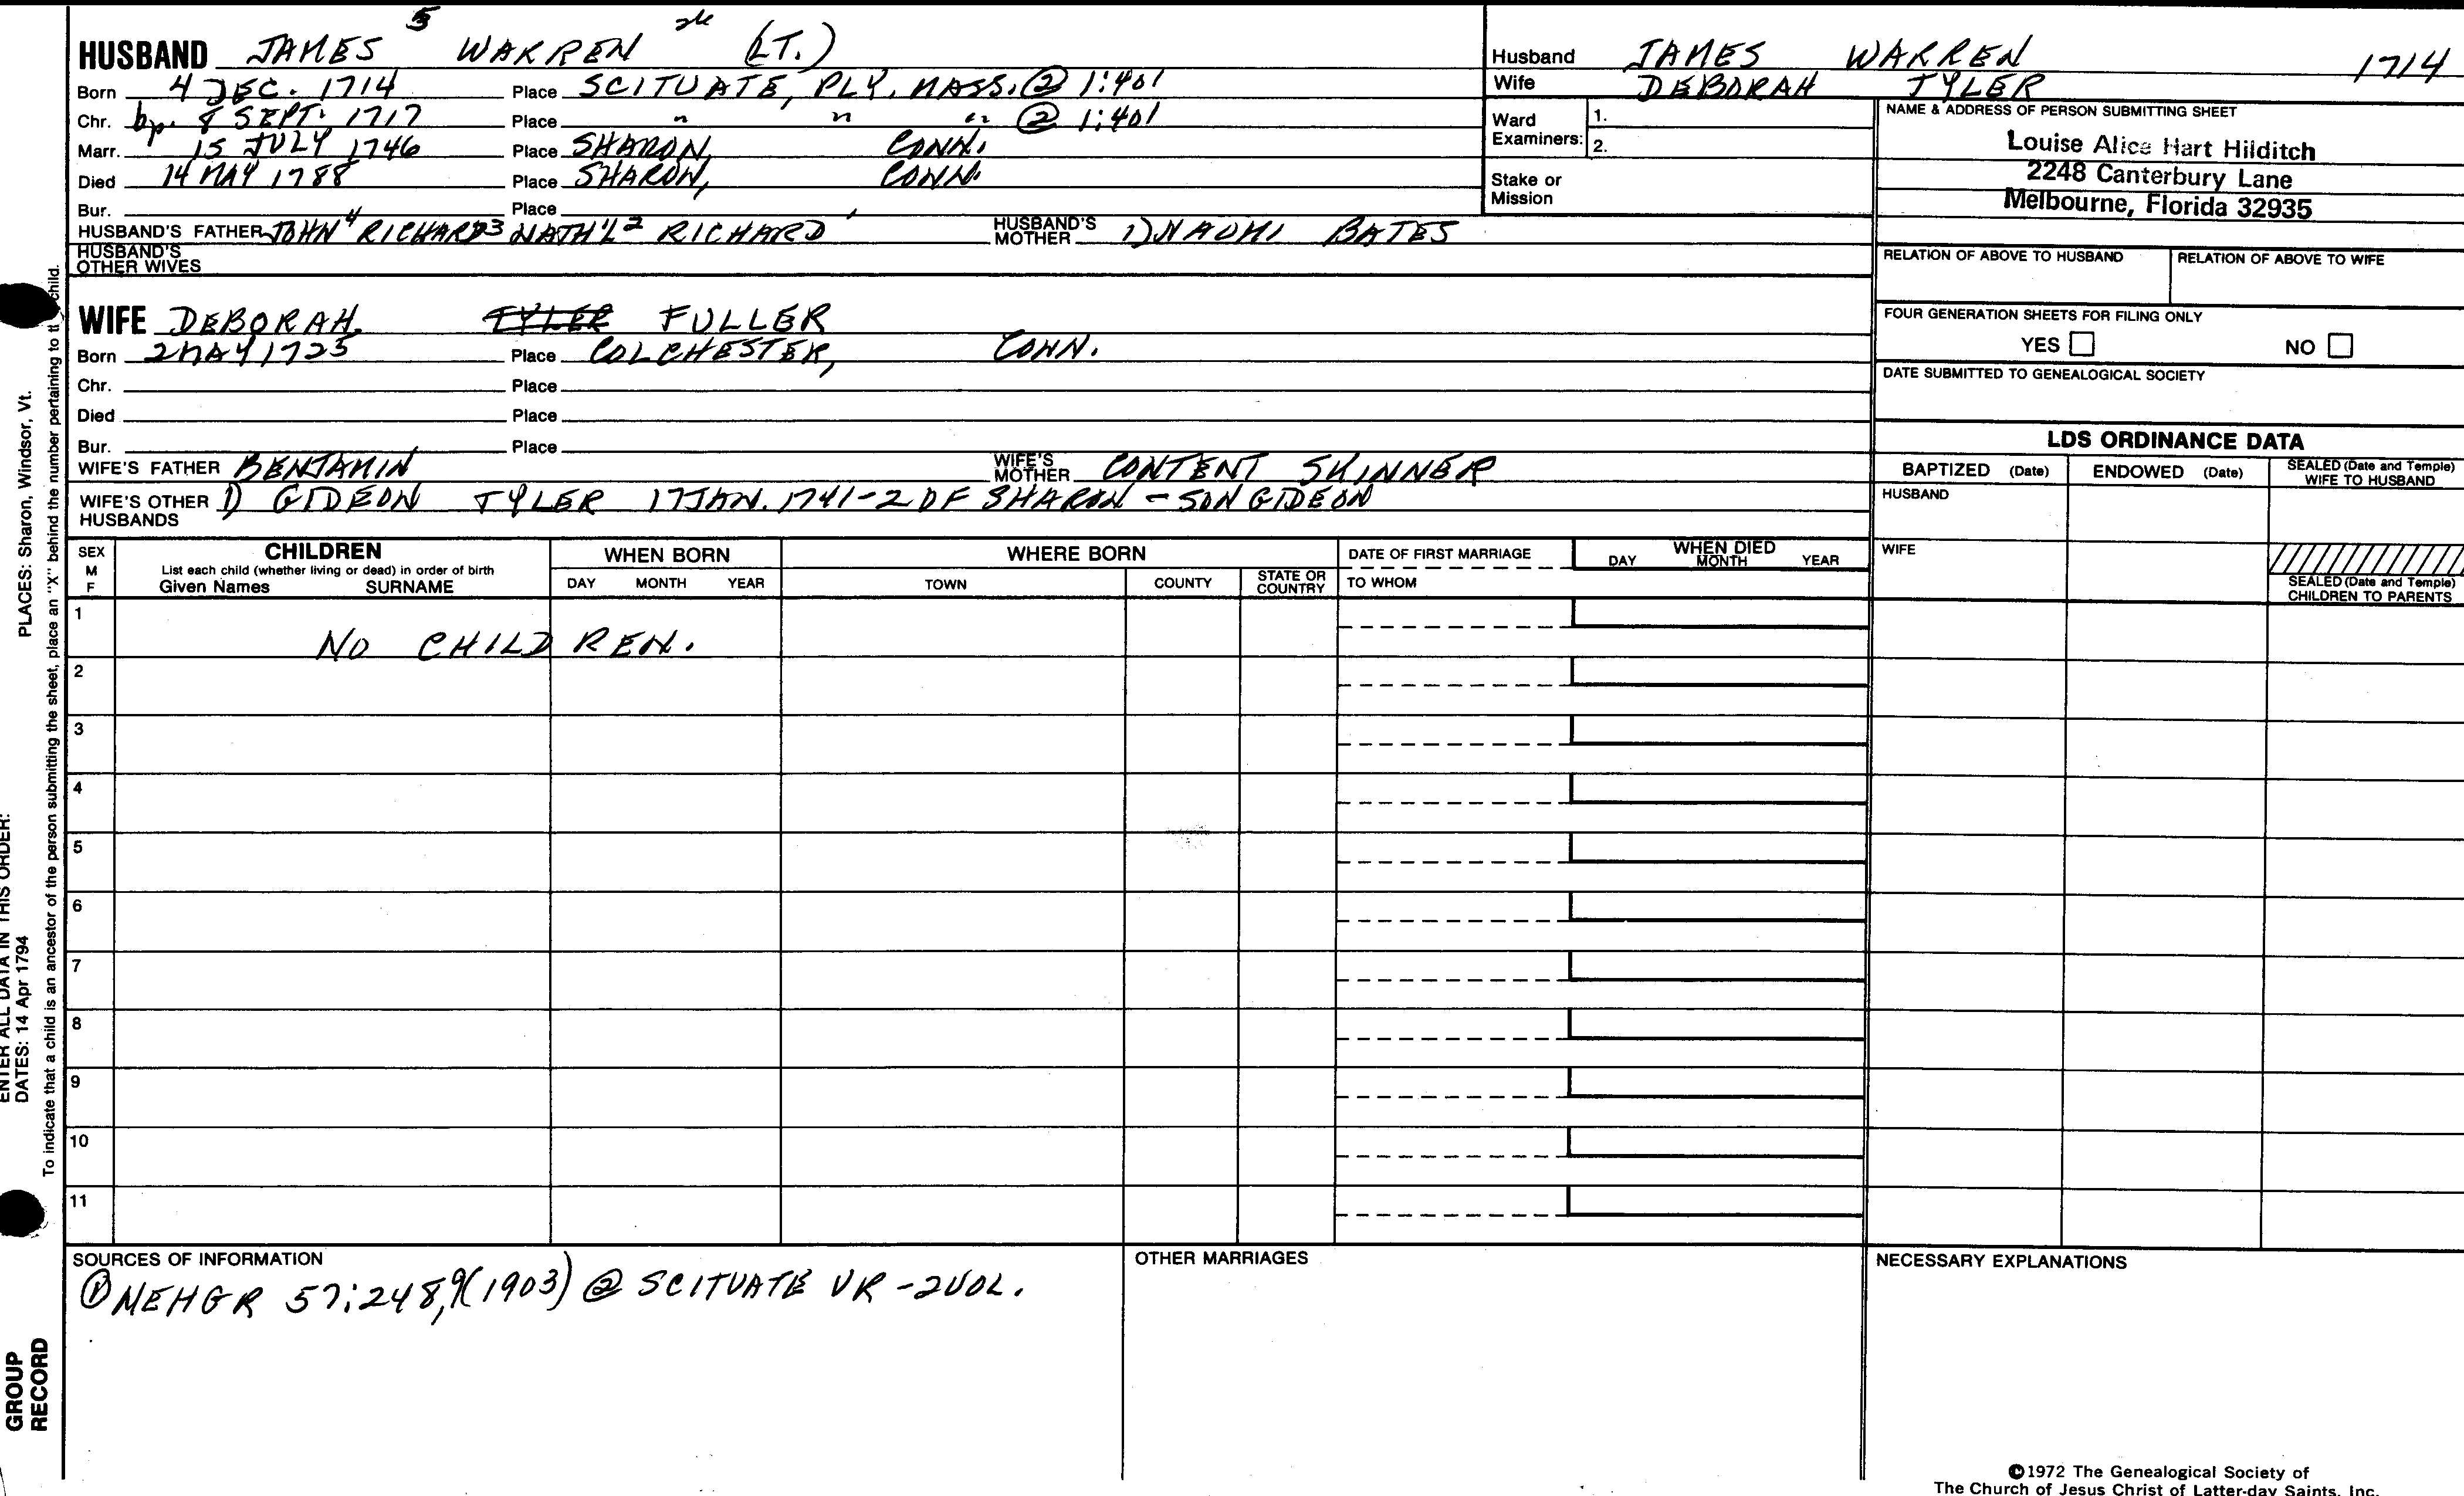 HUSBAND JAMES 5 WARREN (LT.)
Born 4 DEC. 1714 Place SCITUATE, PLY. MASS. @ 1:401
Chr. bp. 8 SEPT. 1717 Place " " " @ 1:401
Marr. 15 JULY 1746 Place SHARON, CONN.
Died 14 MAY 1788 Place SHARON, CONN.
Bur. Place
HUSBAND'S FATHER JOHN 4 RICHARD 3 NATH'L 2 RICHARD ' HUSBAND'S MOTHER 1) NAOMI BATES
HUSBAND'S OTHER WIVES
WIFE DEBORAH TYLER FULLER
Born 2 MAY 1725 Place COLCHESTER, CONN.
Chr. Place
Died Place
Bur. Place
WIFE'S FATHER BENJAMIN WIFE'S MOTHER CONTENT SKINNER
WIFE'S OTHER HUSBANDS 1) GIDEON TYLER 17 JAN. 1741-2 OF SHARON - SON GIDEON
Husband JAMES WARREN 1714
Wife DEBORAH TYLER
Ward Examiners: 1.
2.
Stake or Mission
NAME & ADDRESS OF PERSON SUBMITTING SHEET
Louise Alice Hart Hilditch
2248 Canterbury Lane
Melbourne, Florida 32935
RELATION OF ABOVE TO HUSBAND RELATION OF ABOVE TO WIFE
FOUR GENERATION SHEETS FOR FILING ONLY
YES NO
DATE SUBMITTED TO GENEALOGICAL SOCIETY
LDS ORDINANCE DATA
BAPTIZED (Date) ENDOWED (Date) SEALED (Date and Temple) WIFE TO HUSBAND
HUSBAND
WIFE
SEALED (Date and Temple) CHILDREN TO PARENTS
SEX M F
CHILDREN
List each child (whether living or dead) in order of birth
Given Names SURNAME
WHEN BORN
DAY MONTH YEAR
WHERE BORN
TOWN COUNTY STATE OR COUNTRY
DATE OF FIRST MARRIAGE
TO WHOM
WHEN DIED
DAY MONTH YEAR
1
NO CHILDREN.
2
3
4
5
6
7
8
9
10
11
SOURCES OF INFORMATION
① NEHGR 57:248,9(1903) @ SCITUATE VR - 2VOL.
OTHER MARRIAGES
NECESSARY EXPLANATIONS
©1972 The Genealogical Society of
The Church of Jesus Christ of Latter-day Saints, Inc.
PLACES: Sharon, Windsor, Vt.
ENTER ALL DATA IN THIS ORDER:
DATES: 14 Apr 1794
To indicate that a child is an ancestor of the person submitting the sheet, place an "X" behind the number pertaining to child.
GROUP
RECORD